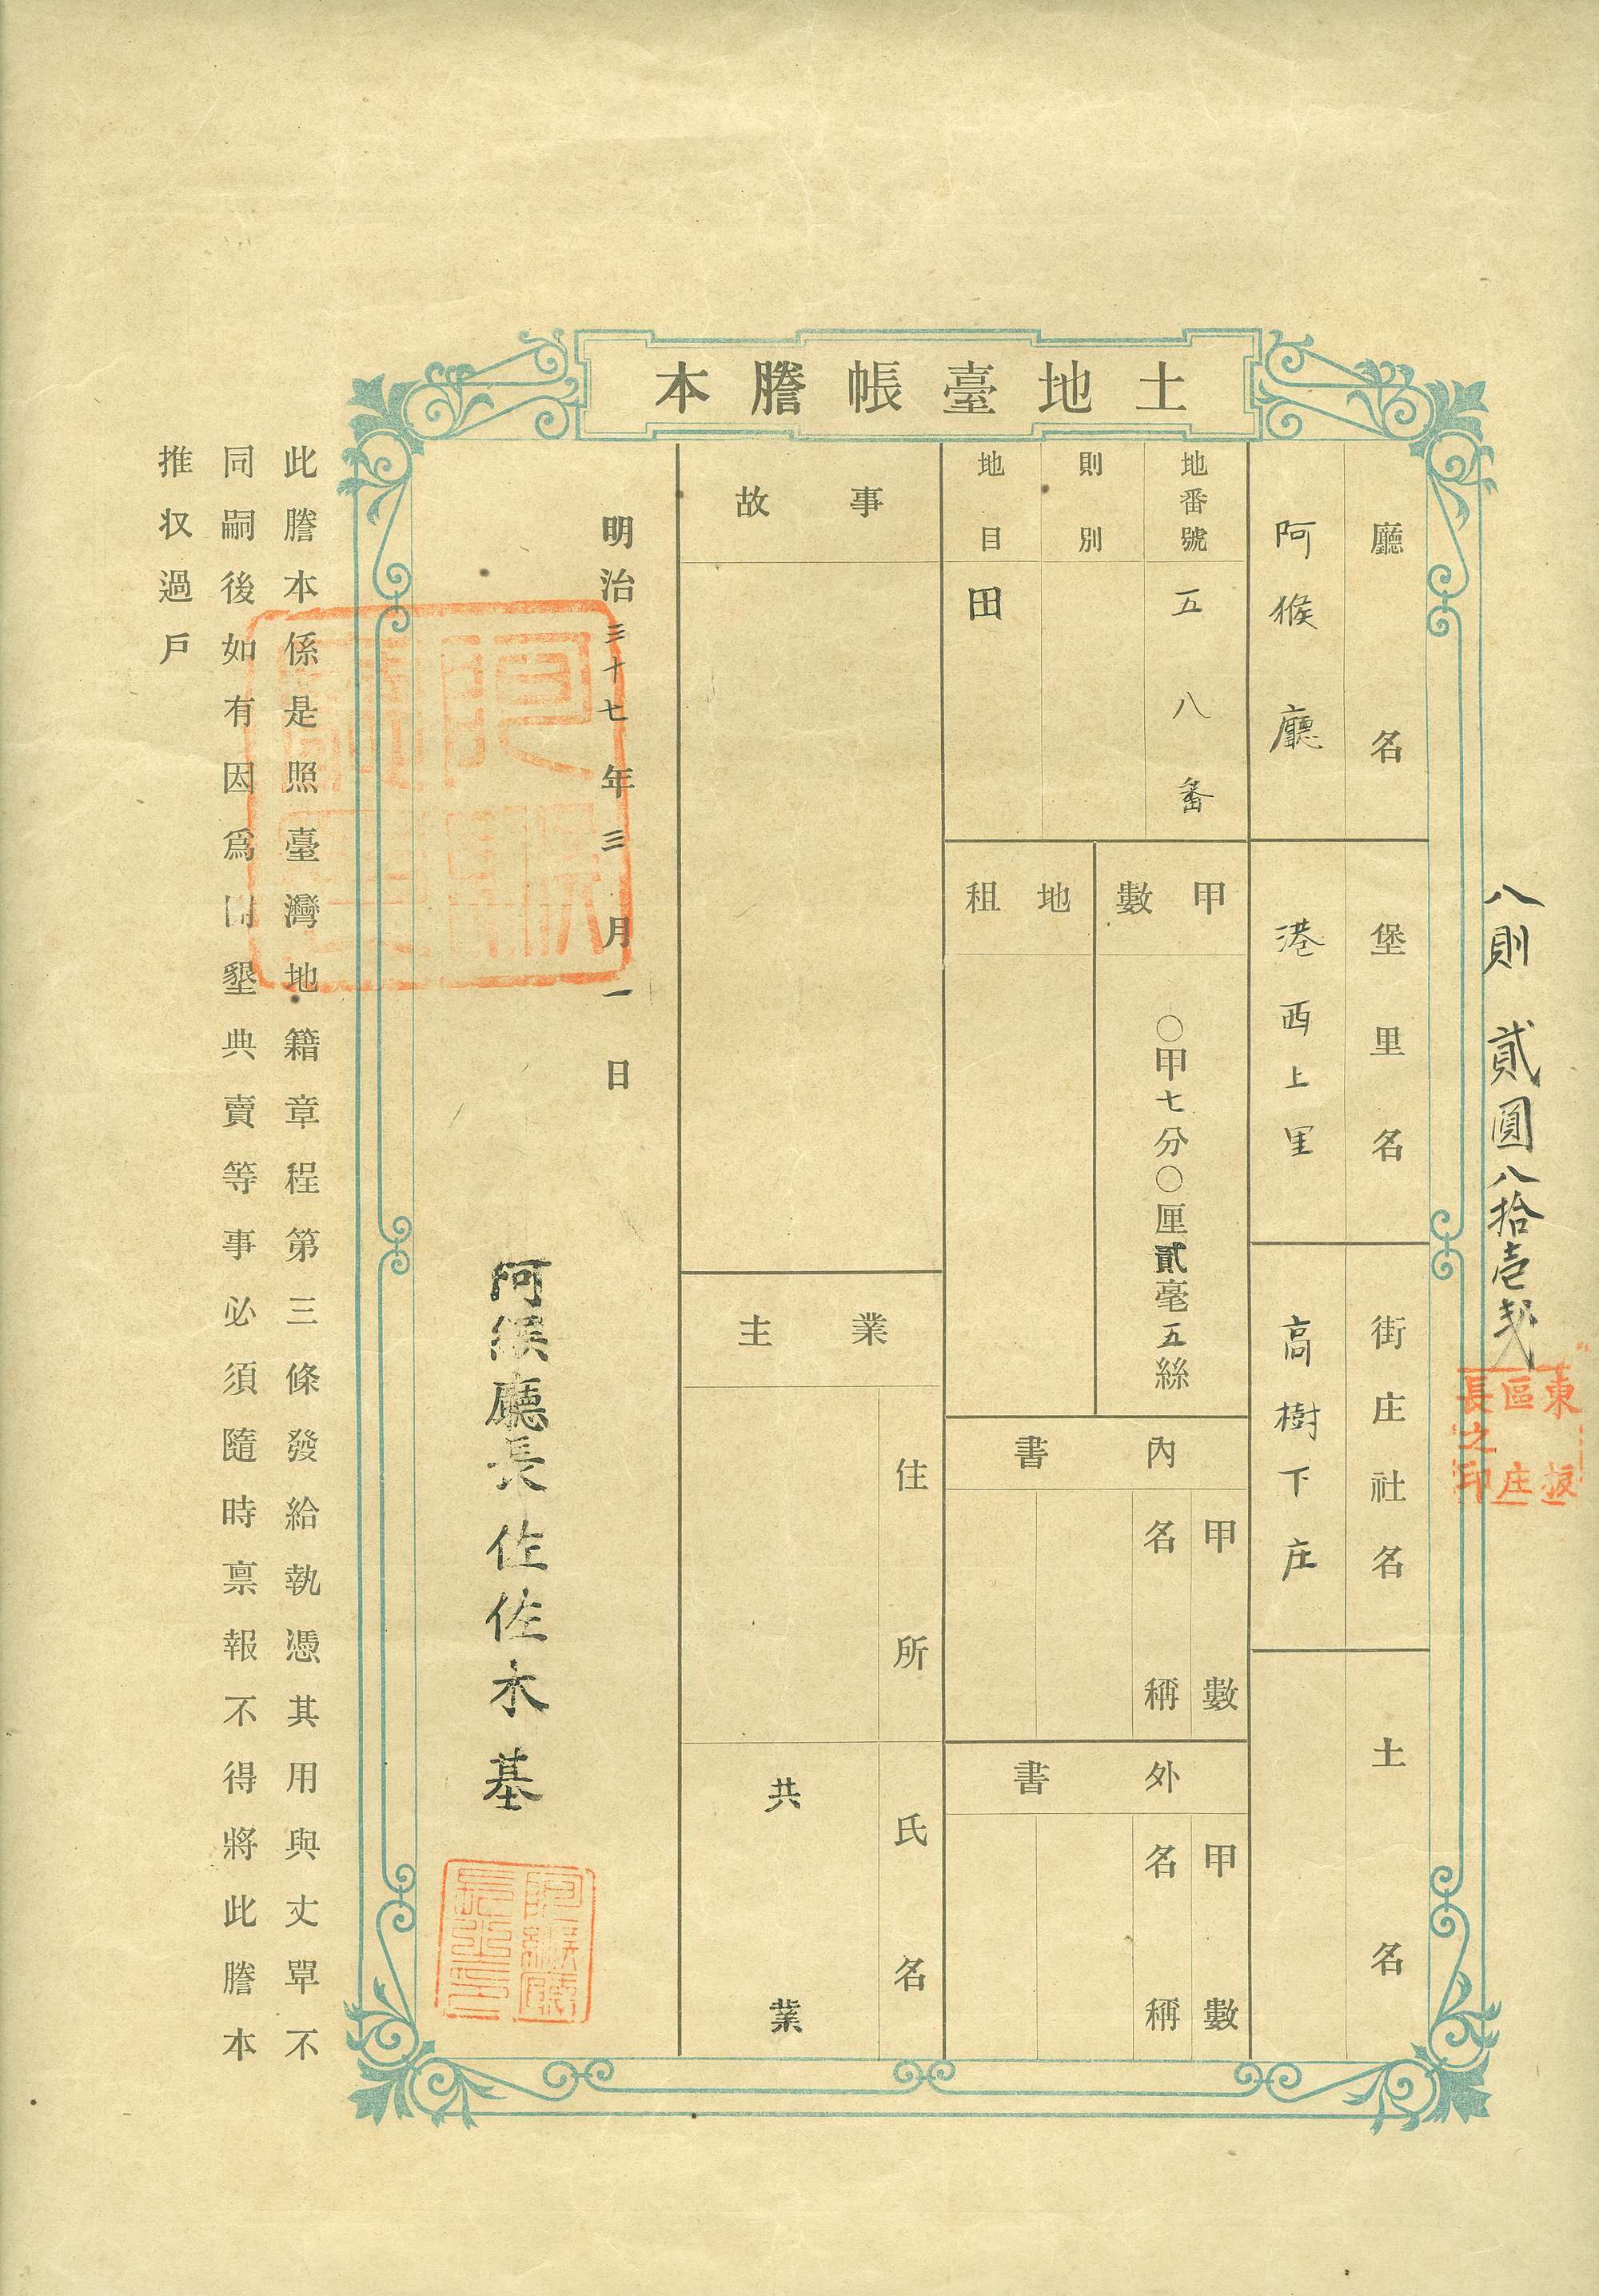 八則 貳圓八拾壱戔
東振區庄長之印
土地臺帳謄本
廳名
阿猴廳
堡里名
港西上里
街庄社名
高樹下庄
土名
地番號
五八番
則別
地目
田
甲數
〇甲七分〇厘貳毫五絲
地租
內書
甲數
名稱
外書
甲數
名稱
事故
業主
住所
氏名
共業
明治三十七年三月一日
阿猴廳長佐佐木基
此謄本係是照臺灣地籍章程第三條發給執憑其用與丈單不
同嗣後如有因爲開墾典賣等事必須隨時禀報不得將此謄本
推収過戶